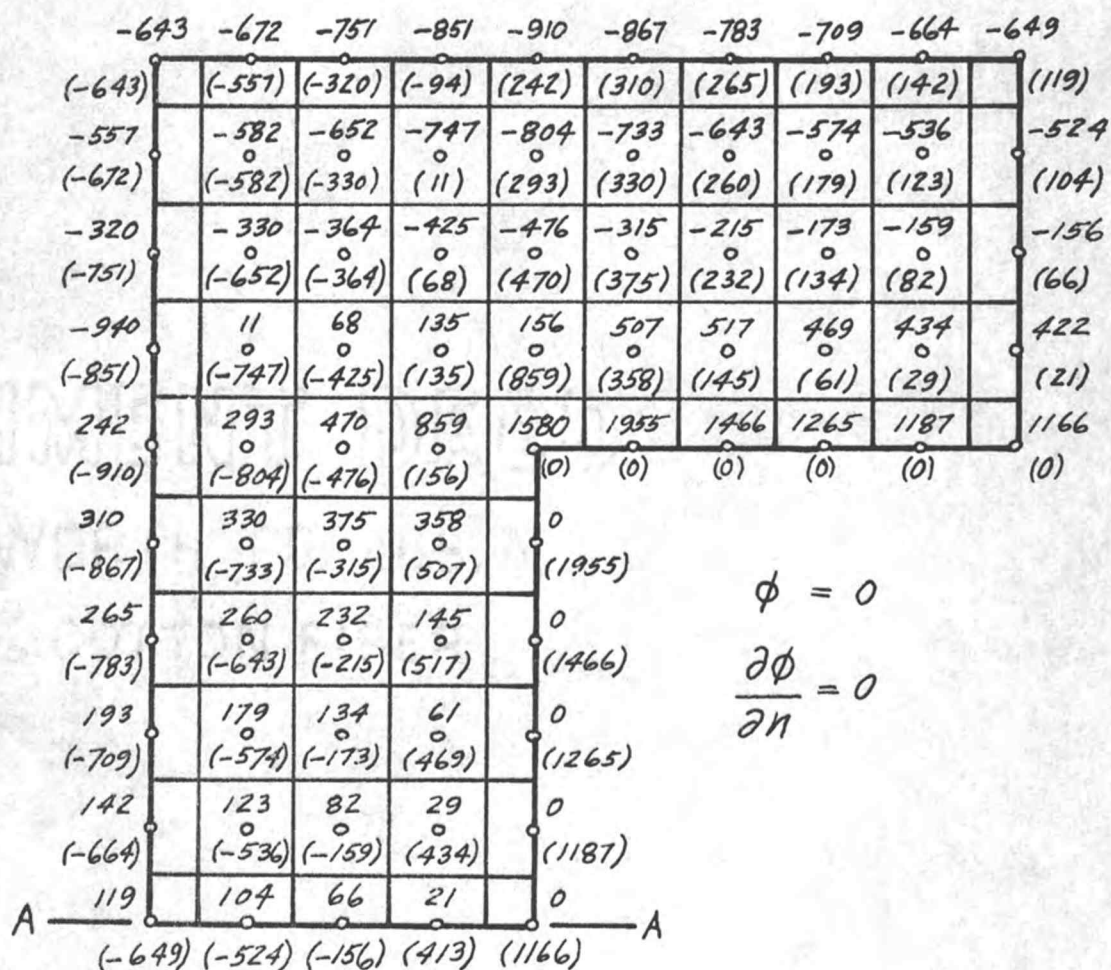 -643 -672 -751 -851 -910 -867 -783 -709 -664 -649
(-643) (-557) (-320) (-94) (242) (310) (265) (193) (142) (119)
-557 -582 -652 -747 -804 -733 -643 -574 -536 -524
(-672) (-582) (-330) (11) (293) (330) (260) (179) (123) (104)
-320 -330 -364 -425 -476 -315 -215 -173 -159 -156
(-751) (-652) (-364) (68) (470) (375) (232) (134) (82) (66)
-940 11 68 135 156 507 517 469 434 422
(-851) (-747) (-425) (135) (859) (358) (145) (61) (29) (21)
242 293 470 859 1580 1955 1466 1265 1187 1166
(-910) (-804) (-476) (156) (0) (0) (0) (0) (0) (0)
310 330 375 358 0
(-867) (-733) (-315) (507) (1955)
265 260 232 145 0
(-783) (-643) (-215) (517) (1466)
193 179 134 61 0
(-709) (-574) (-173) (469) (1265)
142 123 82 29 0
(-664) (-536) (-159) (434) (1187)
A 119 104 66 21 0 A
(-649) (-524) (-156) (413) (1166)
ϕ = 0
∂ϕ
∂n = 0